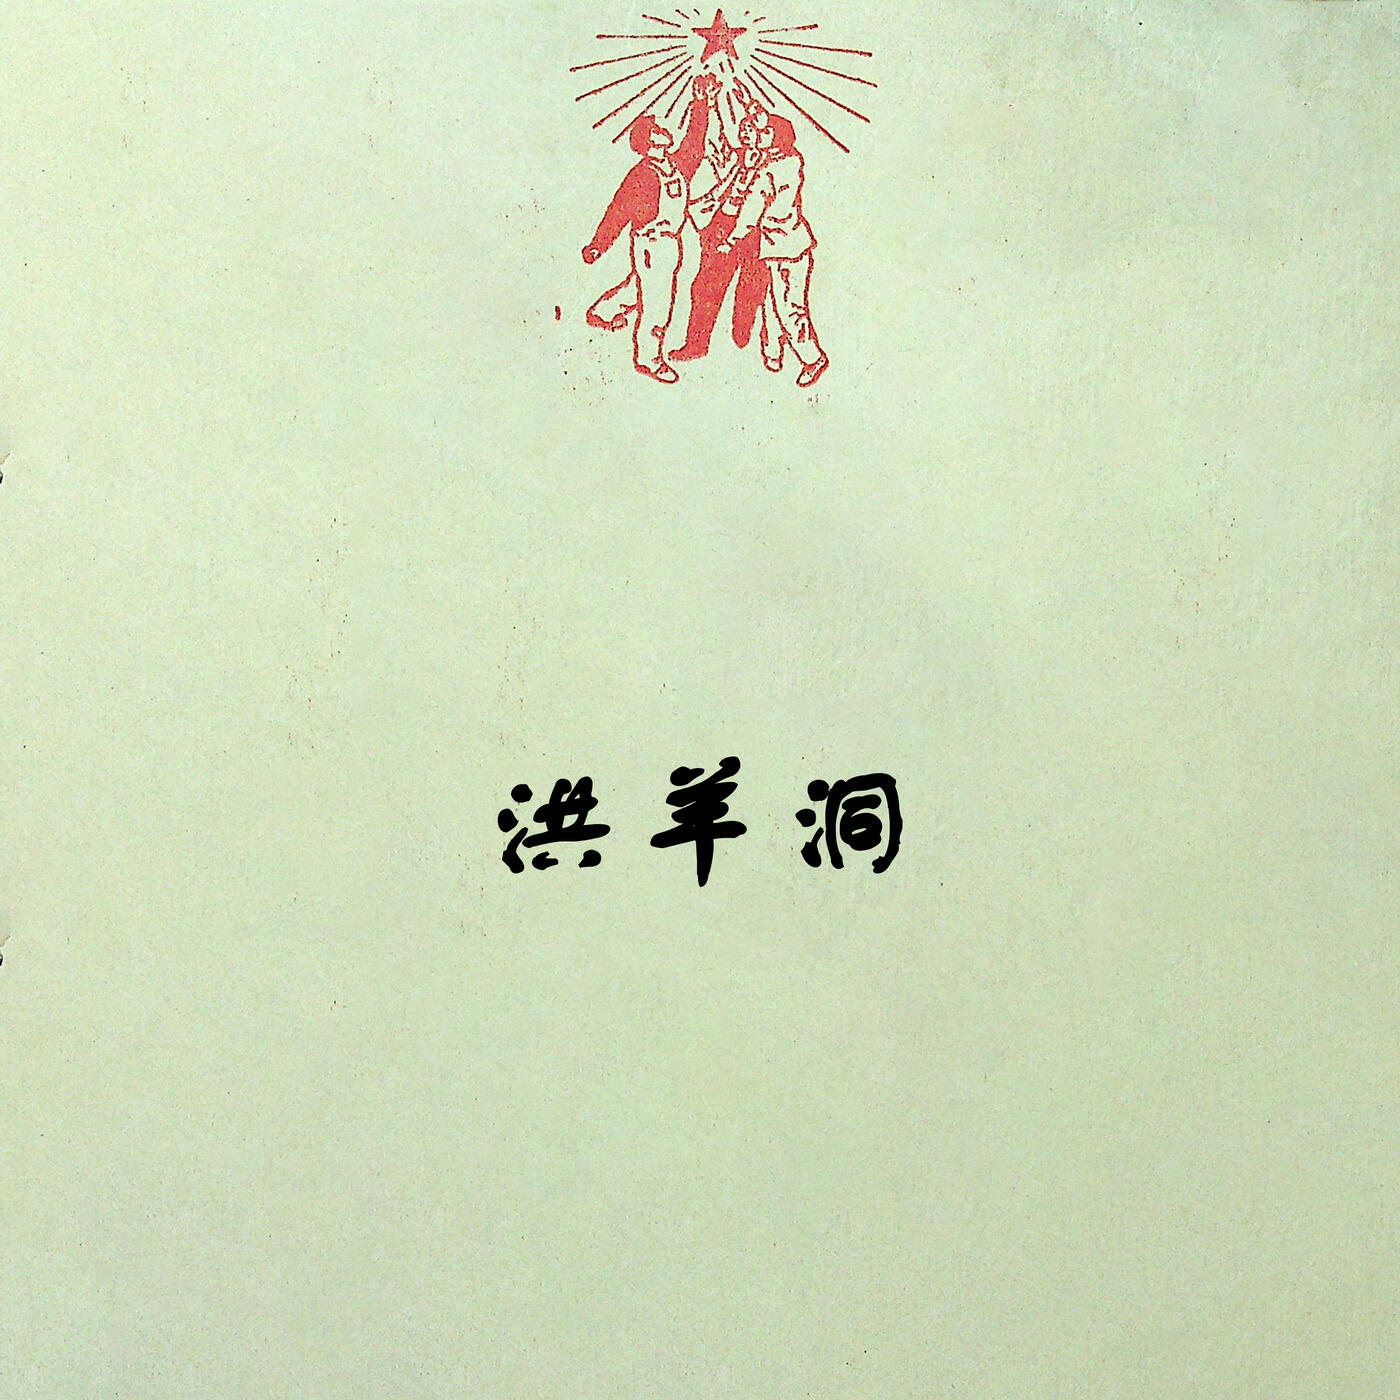 洪羊洞